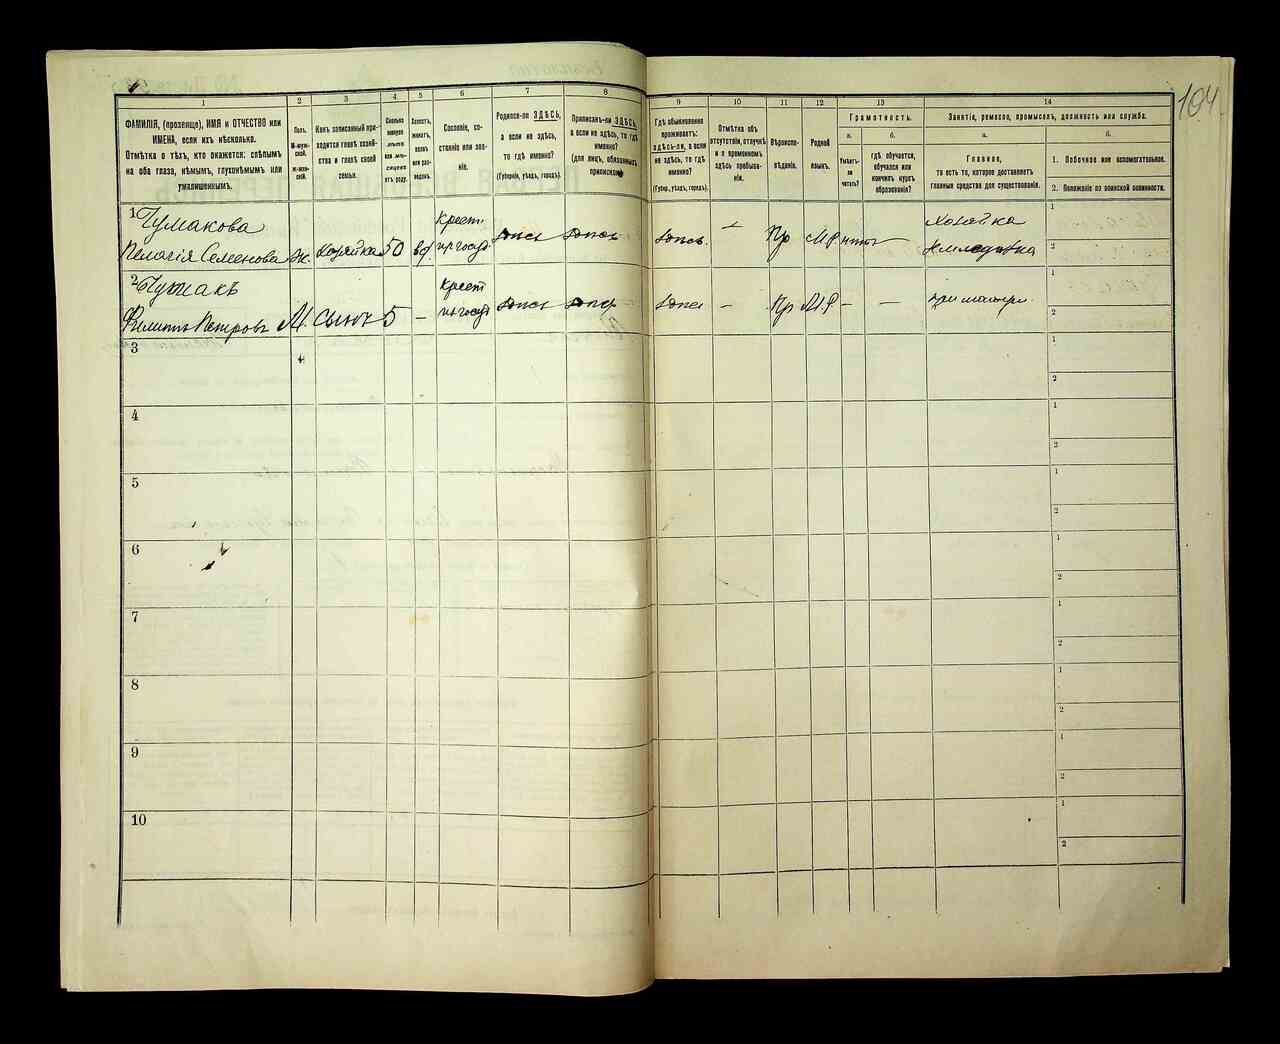 104
1
2
3
4
5
6
7
8
9
10
11
12
13
14
ФАМИЛІЯ, (прозвище), ИМЯ и ОТЧЕСТВО или
ИМЕНА, если ихъ нѣсколько.
Отмѣтка о тѣхъ, кто окажется: слѣпымъ
на оба глаза, нѣмымъ, глухонѣмымъ или
умалишеннымъ.
Полъ.
М-муж-
ской.
Ж-жен-
ской.
Какъ записанный при-
ходится главѣ хозяй-
ства и главѣ своей
семьи.
Сколько
минуло
лѣтъ
или мѣ-
сяцевъ
отъ роду.
Холостъ,
женатъ,
вдовъ
или раз-
веденъ.
Сословіе, со-
стояніе или зва-
ніе.
Родился-ли ЗДѢСЬ,
а если не здѣсь,
то гдѣ именно?
(Губернія, уѣздъ, городъ).
Приписанъ-ли ЗДѢСЬ,
а если не здѣсь, то гдѣ
именно?
(для лицъ, обязанныхъ
припискою)
Гдѣ обыкновенно
проживаетъ:
здѣсь-ли, а если
не здѣсь, то гдѣ
именно?
(Губер., уѣздъ, городъ).
Отмѣтка объ
отсутствіи, отлучкѣ
и о временномъ
здѣсь пребыва-
ніи.
Вѣроиспо-
вѣданіе.
Родной
языкъ.
Грамотность.
а.
Умѣетъ-
ли
читать?
б.
гдѣ обучается,
обучался или
кончилъ курсъ
образованія?
Занятіе, ремесло, промыселъ, должность или служба.
а.
Главное,
то есть то, которое доставляетъ
главныя средства для существованія.
б.
1. Побочное или вспомогательное.
2. Положеніе по воинской повинности.
1 Чумакова
Пелагія Семенова Ж. Хозяйка 50 вд. Крест. М.Р. Пр
Хозяйка
2
Филиппъ Петровъ М. сынъ 5 – Крест – Пр М.Р – –
3
4
5
6
7
8
9
10
1
2
1
2
1
2
1
2
1
2
1
2
1
2
1
2
1
2
1
2